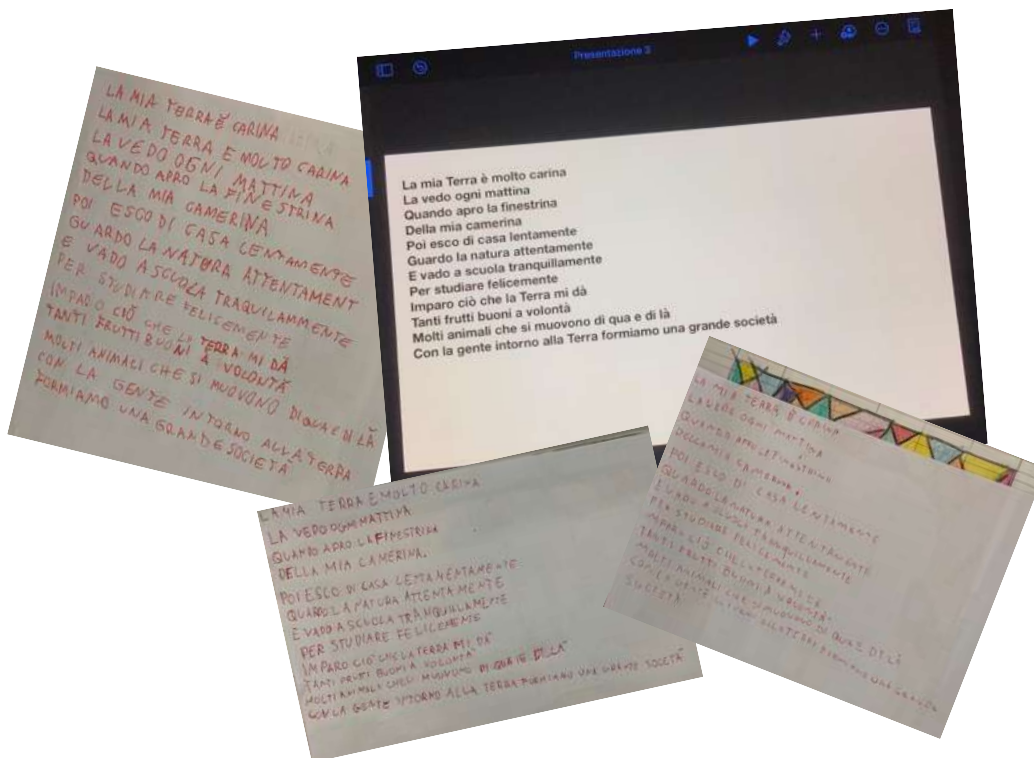 LA MIA TERRA È CARINA
LA MIA TERRA E MOLTO CARINA
LA VEDO OGNI MATTINA
QUANDO APRO LA FINESTRINA
DELLA MIA CAMERINA
POI ESCO DI CASA LENTAMENTE
GUARDO LA NATURA ATTENTAMENT
E VADO A SCUOLA TRAQUILAMMENTE
PER STUDIARE FELICEMENTE
IMPARO CIÓ CHE LA TERRA MI DÁ
TANTI FRUTTI BUONI A VOLONTÁ
MOLTI ANIMALI CHE SI MUOVONO DI QUA E DI LÁ
CON LA GENTE INTORNO ALLA TERRA
FORMIAMO UNA GRANDE SOCIETÁ
Presentazione 3
La mia Terra è molto carina
La vedo ogni mattina
Quando apro la finestrina
Della mia camerina
Poi esco di casa lentamente
Guardo la natura attentamente
E vado a scuola tranquillamente
Per studiare felicemente
Imparo ciò che la Terra mi dà
Tanti frutti buoni a volontà
Molti animali che si muovono di qua e di là
Con la gente intorno alla Terra formiamo una grande società
LA MIA TERRA E MOLTO CARINA
LA VEDO OGNI MATTINA
QUANDO APRO LA FINESTRINA
DELLA MIA CAMERINA.
POI ESCO DI CASA
LA NATURA ATTENTAMENTE
E VADO A SCUOLA TRANQUILLAMENTE
PER STUDIARE FELICEMENTE
IMPARO CIO' CHE LA TERRA MI DA'
TANTI FRUTTI BUONI A VOLONTA'
MOLTI ANIMALI MUOVONO DI QUA E DI LA'
CON LA GENTE INTORNO ALLA TERRA FORMIAMO UNA GRANDE
LA MIA TERRA È
OGNI MATTINA
QUANDO APRO
DELLA MIA CAMERINA.
POI ESCO DI CASA LENTAMENTE
GUARDO LA NATURA ATTENTAMENTE
E VADO A
PER STUDIARE
TANTI FRUTTI BUONI A VOLONTÀ.
MOLTI ANIMALI CHE SI MUOVONO DI QUA E DI LÀ